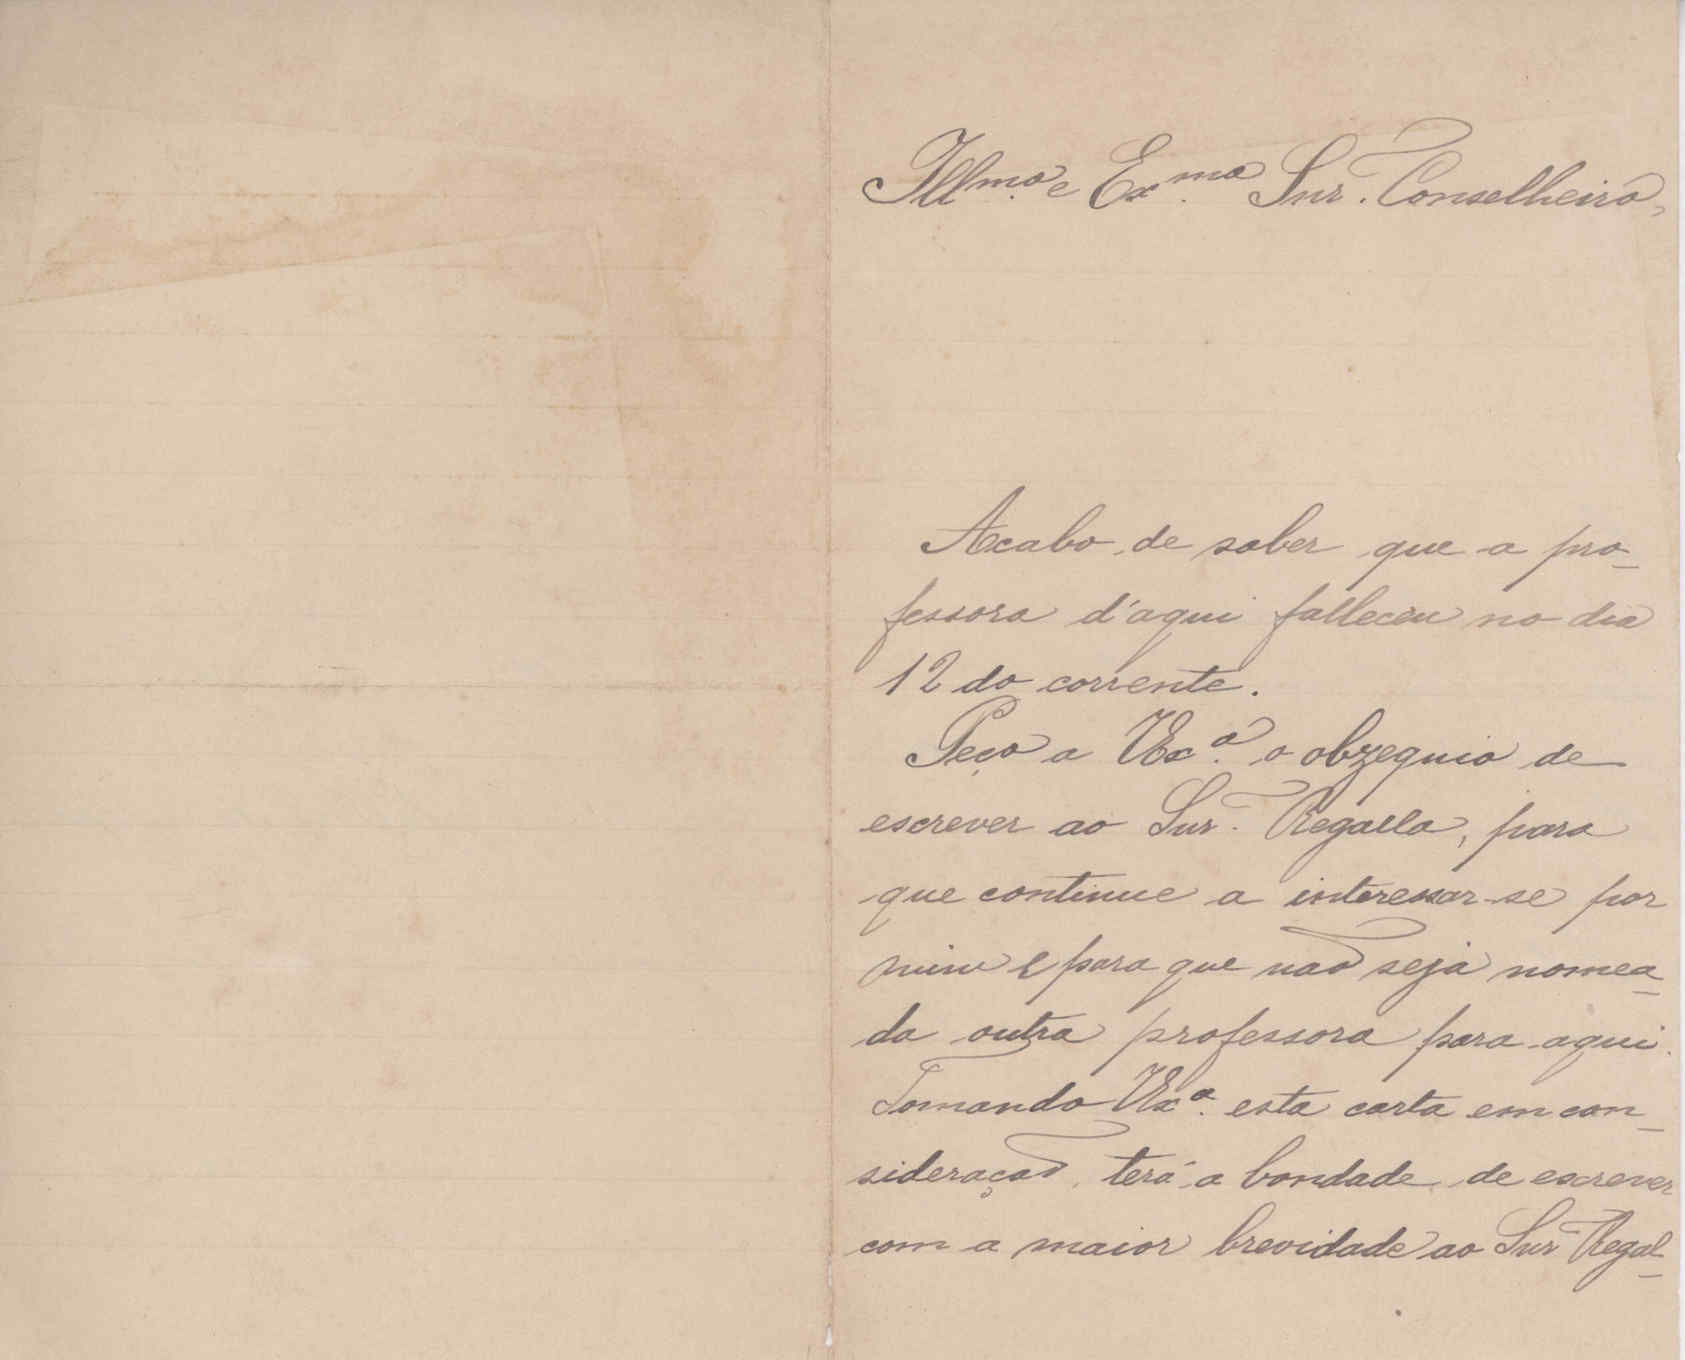 Illmo. e Exmo. Snr. Conselheiro,
Acabo de saber que a pro-
fessora d'aqui falleceu no dia
12 do corrente.
Peço a VExª. o obzequio de
escrever ao Snr. Regalla, para
que continue a interessar-se por
mim e para que não seja nomea-
da outra professora para aqui.
Tomando VExª. esta carta em con-
sideração, terá a bondade de escrever
com a maior brevidade ao Snr Regal-